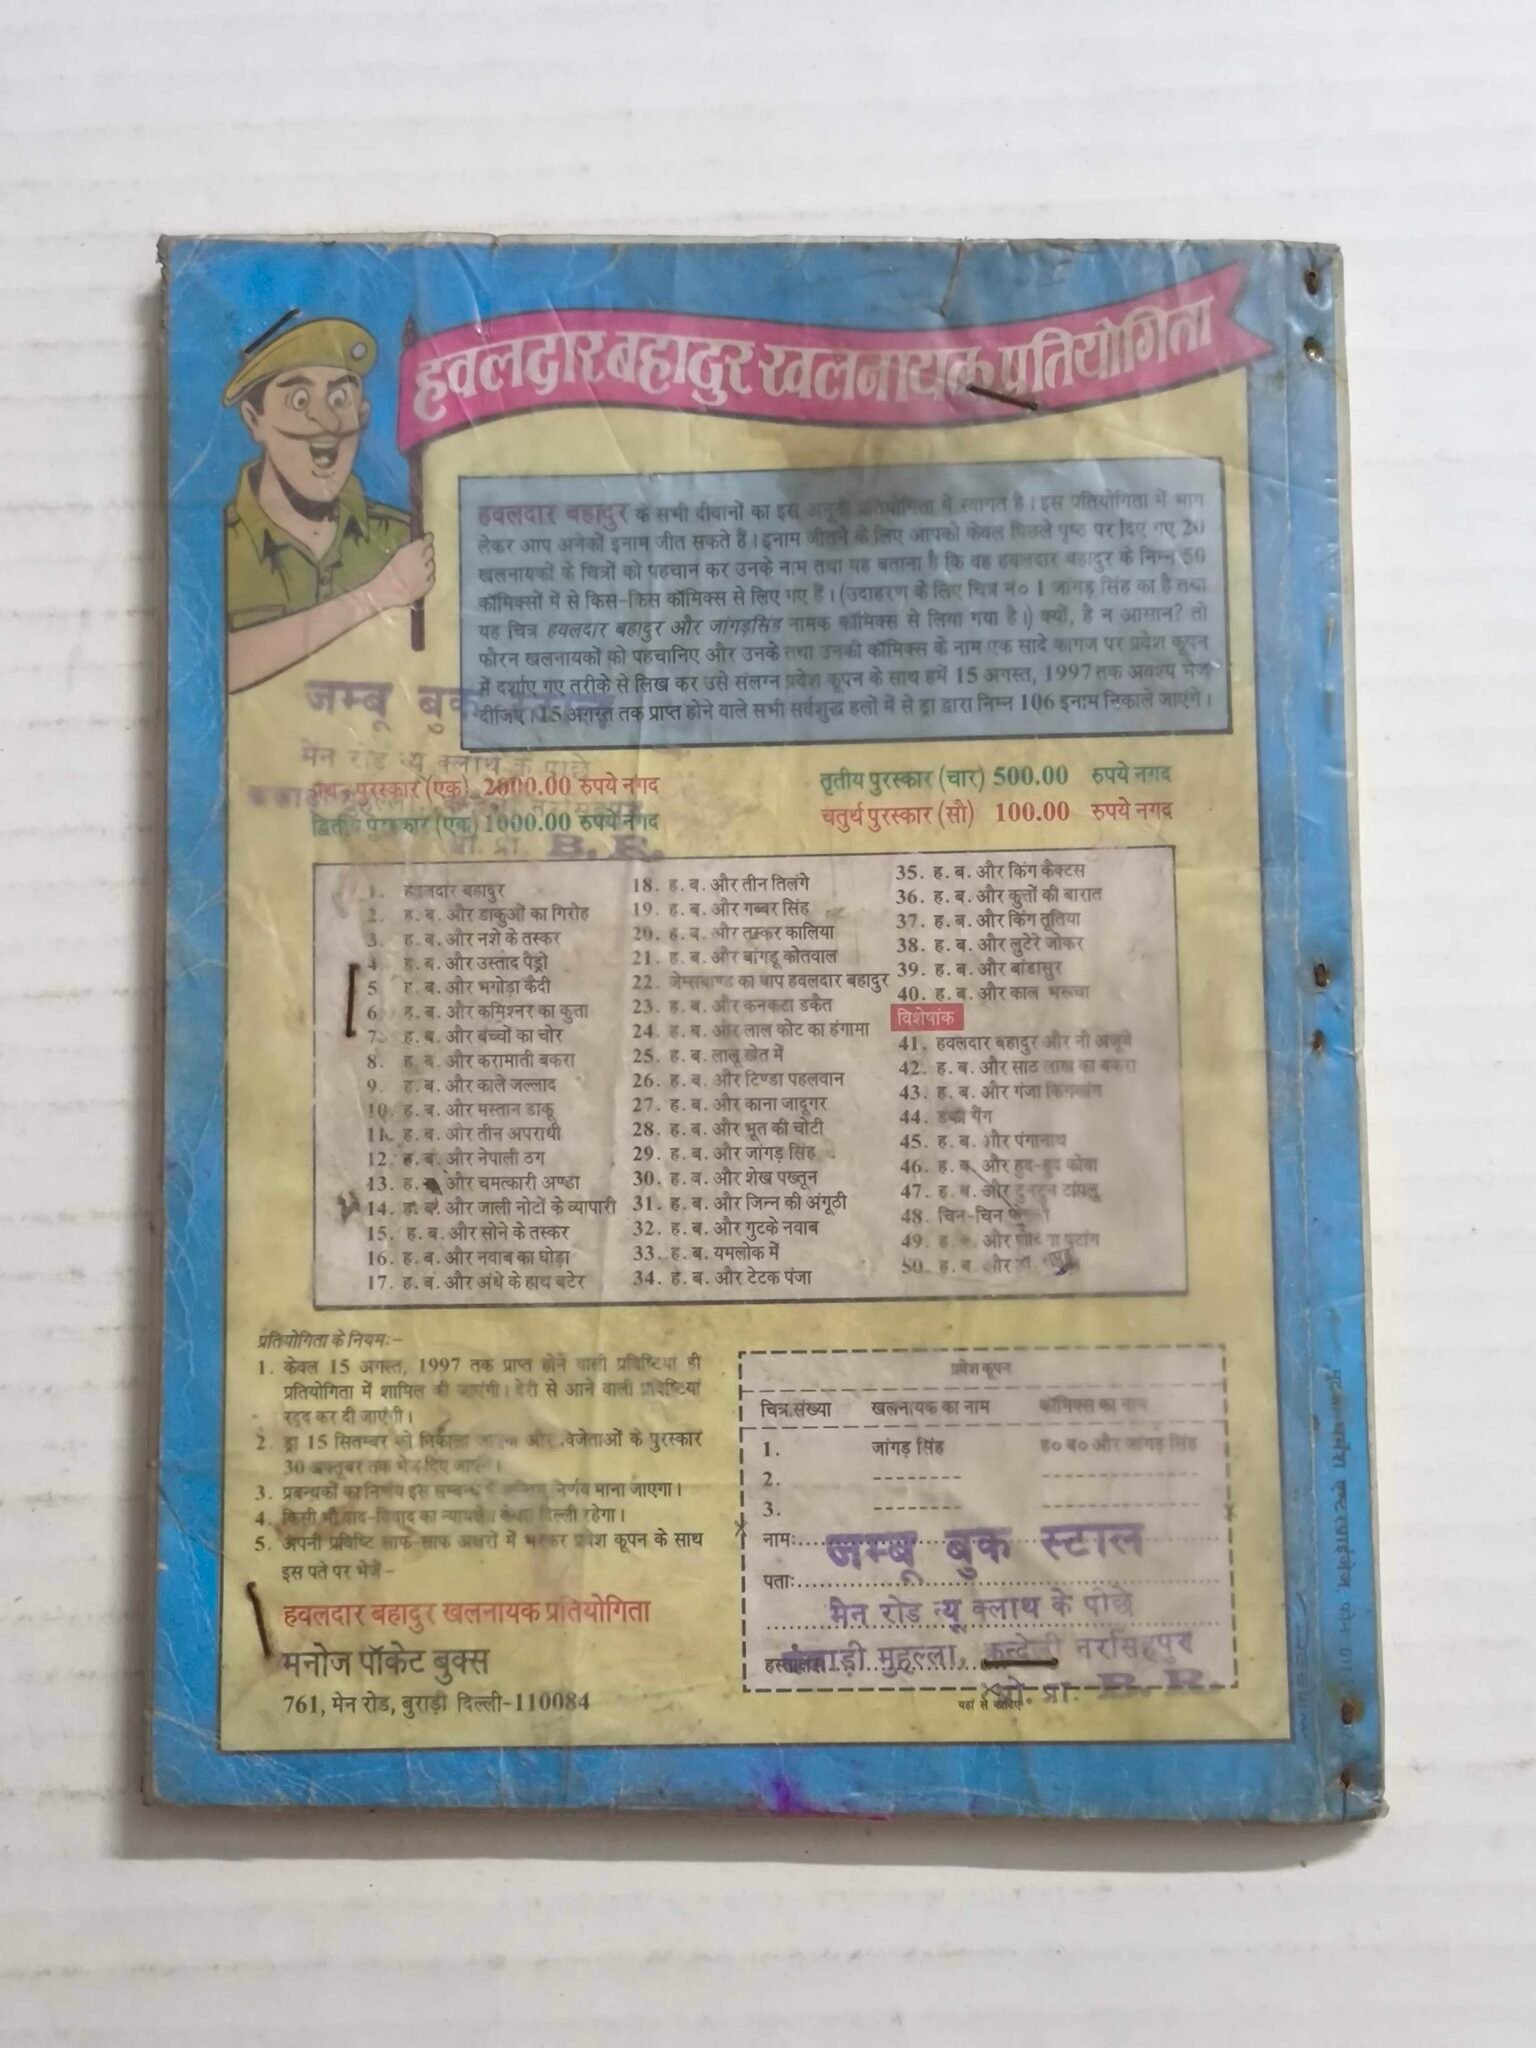 हवलदार बहादुर खलनायक प्रतियोगिता
हवलदार बहादुर के सभी दीवानों का इस अनूठी प्रतियोगिता में स्वागत है। इस प्रतियोगिता में भाग
लेकर आप अनेकों इनाम जीत सकते हैं। इनाम जीतने के लिए आपको केवल पिछले पृष्ठ पर दिए गए 20
खलनायकों के चित्रों को पहचान कर उनके नाम तथा यह बताना है कि वह हवलदार बहादुर के निम्न 50
कॉमिक्सों में से किस-किस कॉमिक्स से लिए गए हैं। (उदाहरण के लिए चित्र नं० 1 जांगड़ सिंह का है तथा
यह चित्र हवलदार बहादुर और जांगड़सिंह नामक कॉमिक्स से लिया गया है।) क्यों, है न आसान? तो
फौरन खलनायकों को पहचानिए और उनके तथा उनकी कॉमिक्स के नाम एक सादे कागज पर प्रवेश कूपन
में दर्शाए गए तरीके से लिख कर उसे संलग्न प्रवेश कूपन के साथ हमें 15 अगस्त, 1997 तक अवश्य भेज
दीजिए। 15 अगस्त तक प्राप्त होने वाले सभी सर्वशुद्ध हलों में से ड्रा द्वारा निम्न 106 इनाम निकाले जाएंगे।
जम्बू बुक
मेन रोड न्यू क्लाथ के पीछे
प्रथम पुरस्कार (एक) 2000.00 रुपये नगद
द्वितीय पुरस्कार (एक) 1000.00 रुपये नगद
प्रो. प्रा. B. R.
तृतीय पुरस्कार (चार) 500.00 रुपये नगद
चतुर्थ पुरस्कार (सौ) 100.00 रुपये नगद
1. हवलदार बहादुर
2. ह. ब. और डाकुओं का गिरोह
3. ह. ब. और नशे के तस्कर
4. ह. ब. और उस्ताद पैड्रो
5 ह. ब. और भगोड़ा कैदी
6. ह. ब. और कमिश्नर का कुत्ता
7. ह. ब. और बच्चों का चोर
8. ह. ब. और करामाती बकरा
9. ह. ब. और काले जल्लाद
10. ह. ब. और मस्तान डाकू
11. ह. ब. और तीन अपराधी
12. ह. ब. और नेपाली ठग
13. ह. ब. और चमत्कारी अण्डा
14. ह. ब. और जाली नोटों के व्यापारी
15. ह. ब. और सोने के तस्कर
16. ह. ब. और नवाब का घोड़ा
17. ह. ब. और अंधे के हाथ बटेर
18. ह. ब. और तीन तिलंगे
19. ह. ब. और गब्बर सिंह
20. ह. ब. और तस्कर कालिया
21. ह. ब. और बांगडू कोतवाल
22. जेम्सबाण्ड का बाप हवलदार बहादुर
23. ह. ब. और कनकटा डकैत
24. ह. ब. और लाल कोट का हंगामा
25. ह. ब. लालू खेत में
26. ह. ब. और टिण्डा पहलवान
27. ह. ब. और काना जादूगर
28. ह. ब. और भूत की चोटी
29. ह. ब. और जांगड़ सिंह
30. ह. ब. और शेख पख्तून
31. ह. ब. और जिन्न की अंगूठी
32. ह. ब. और गुटके नवाब
33. ह. ब. यमलोक में
34. ह. ब. और टेटक पंजा
35. ह. ब. और किंग कैक्टस
36. ह. ब. और कुत्तों की बारात
37. ह. ब. और किंग तूतिया
38. ह. ब. और लुटेरे जोकर
39. ह. ब. और बांडासुर
40. ह. ब. और काल भरूचा
विशेषांक
41. हवलदार बहादुर और नौ अजूबे
42. ह. ब. और साठ लाख का बकरा
43. ह. ब. और गंजा किंगकांग
44. डंकी गैंग
45. ह. ब. और पंगानाथ
46. ह. ब. और हुद-हुद कौवा
47. ह. ब. और टुनटुन टांपलू
48. चिन-चिन
49. ह. ब. और
50. ह. ब. और डा.
प्रतियोगिता के नियम:-
1. केवल 15 अगस्त, 1997 तक प्राप्त होने वाली प्रविष्टियां ही
प्रतियोगिता में शामिल की जाएंगी। देरी से आने वाली प्रविष्टियां
रद्द कर दी जाएंगी।
2. ड्रा 15 सितम्बर को निकाला जाएगा और विजेताओं के पुरस्कार
30 अक्तूबर तक भेज दिए जाएंगे।
3. प्रबन्धकों का निर्णय इस सम्बन्ध में अन्तिम निर्णय माना जाएगा।
4. किसी भी वाद-विवाद का न्यायक्षेत्र केवल दिल्ली रहेगा।
5. अपनी प्रविष्टि साफ-साफ अक्षरों में भरकर प्रवेश कूपन के साथ
इस पते पर भेजें-
हवलदार बहादुर खलनायक प्रतियोगिता
मनोज पॉकेट बुक्स
761, मेन रोड, बुराड़ी दिल्ली-110084
प्रवेश कूपन
चित्र संख्या खलनायक का नाम कॉमिक्स का नाम
1. जांगड़ सिंह ह० ब० और जांगड़ सिंह
2. -------- --------
3. -------- --------
नाम:
जम्बू बुक स्टाल
पता:
मेन रोड न्यू क्लाथ के पीछे
हस्ताक्षर
मुहल्ला, कन्देली नरसिंहपुर
प्रो. प्रा. B. R.
यहां से काटिए